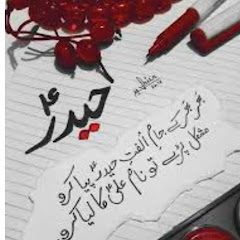 حیدرؑ
بھر بھر کے جامِ الفتِ حیدرؑ پیا کرو
مشکل پڑے تو نامِ علیؑ کا لیا کرو